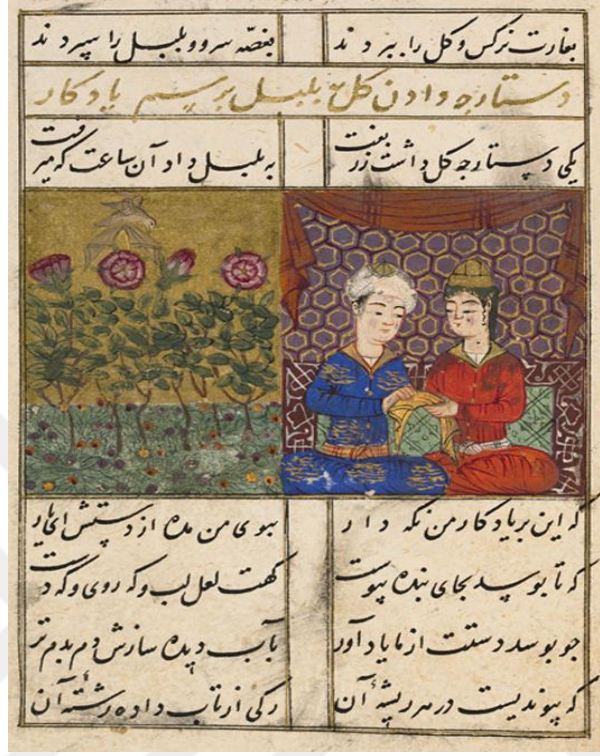 بغارت نرکس و کل را ببر د ند بغصّه سرو و بلبل را سپرد ند
دستارجه دادن کل به بلبل برسم یادکار
یکی دستارجه کل داشت زربفت به بلبل داد آن ساعت که میرفت
که این بر یادکار من نکه دار ببوی من مده از دستش ای یار
که تا بوسد بجای بنده پیوست کهت لعل لب و که روی و که دست
جو بوسد دستت از ما یاد آور بآب دیده سازش دم بدم تر
که پیوندیست در هر ریشهٔ آن رکی از تاب داده رشتهٔ آن